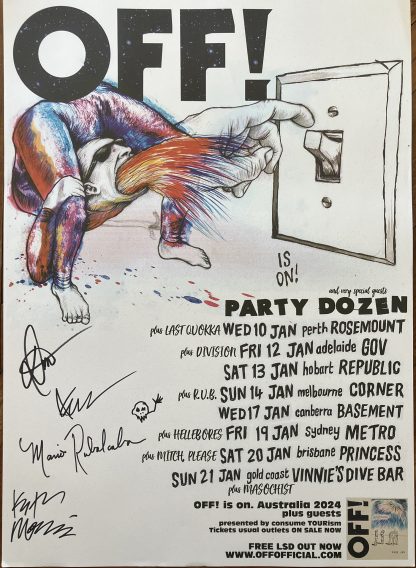 OFF!
IS
ON!
and very special guests
PARTY DOZEN
plus LAST QUOKKA WED 10 JAN perth ROSEMOUNT
plus DIVISION FRI 12 JAN adelaide GOV
SAT 13 JAN hobart REPUBLIC
plus R.U.B. SUN 14 JAN melbourne CORNER
WED 17 JAN canberra BASEMENT
plus HELLEBORES FRI 19 JAN sydney METRO
plus MITCH, PLEASE SAT 20 JAN brisbane PRINCESS
SUN 21 JAN gold coast VINNIE'S DIVE BAR
plus MASOCHIST
Mario Rubalcaba
OFF! is on. Australia 2024
plus guests
presented by consume TOURism
Tickets usual outlets ON SALE NOW
FREE LSD OUT NOW
WWW.OFFOFFICIAL.COM
OFF!
FREE LSD